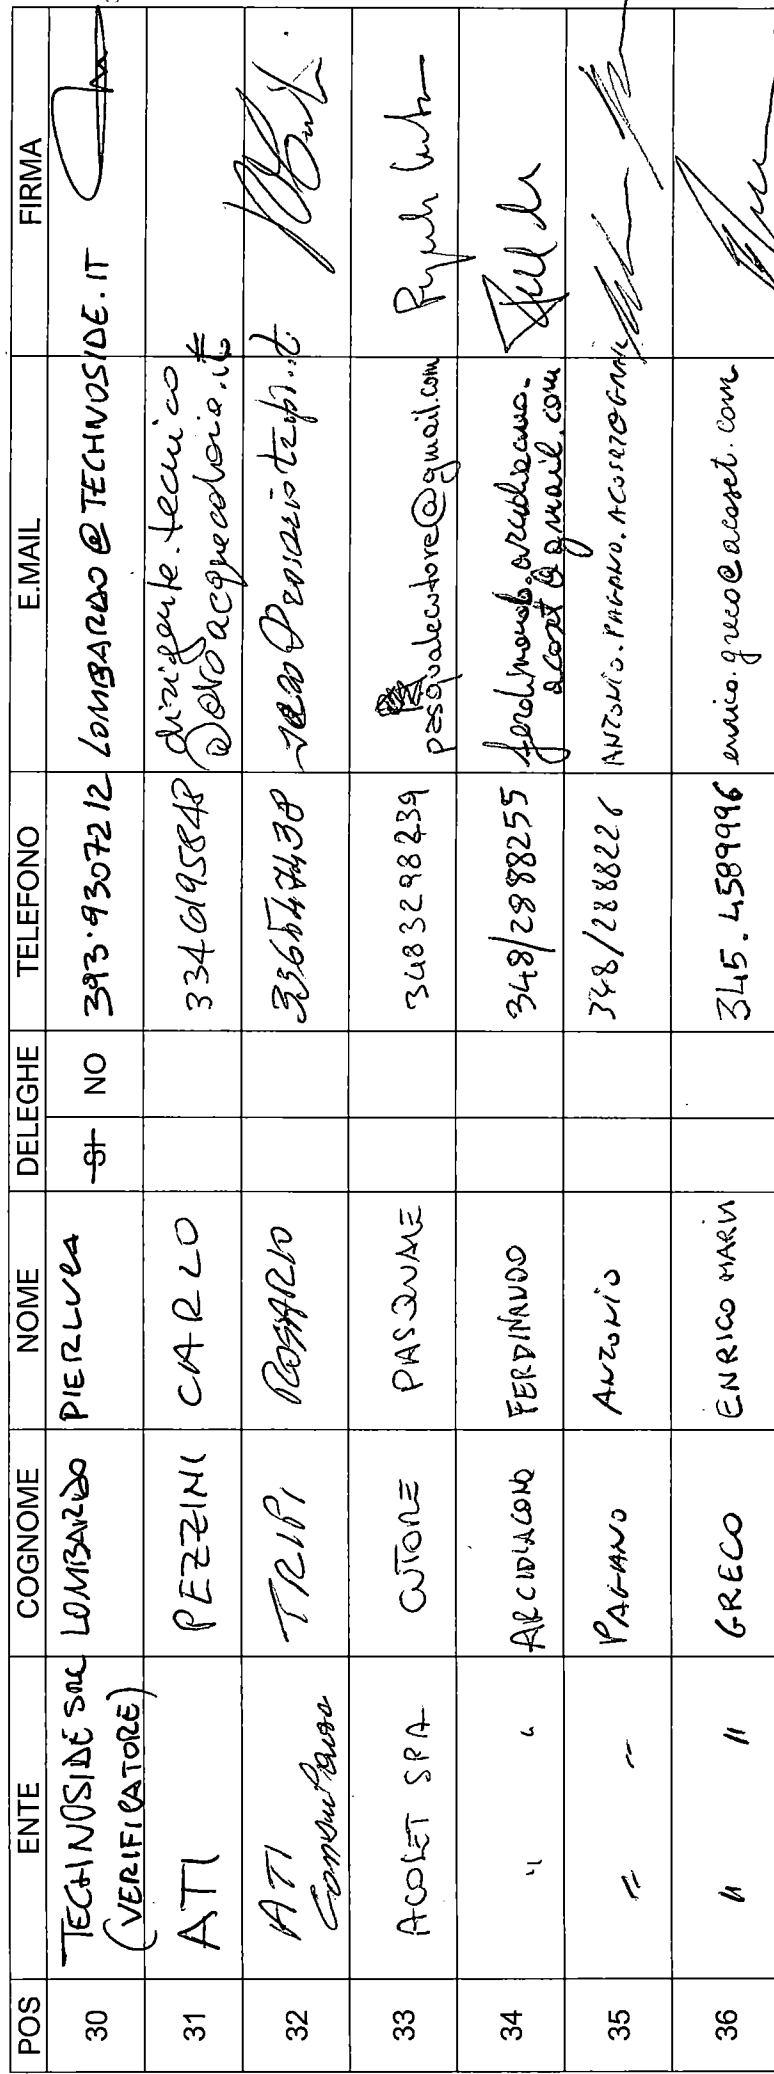 POS ENTE COGNOME NOME DELEGHE TELEFONO E.MAIL FIRMA
30 TECHNOSIDE SRL (VERIFICATORE) LOMBARDO PIERLUCA SI NO 393.9307212 LOMBARDO@TECHNOSIDE.IT
31 ATI PEZZINI CARLO 3346195848 dirigente.tecnico
@doriacquedoria.it
32 ATI TRIPI ROSARIO
33 ACOSET SPA CUTORE PASQUALE 3483298239 pasqualecutore@gmail.com
34 " " ARCIDIACONO FERDINANDO 348/2888255 ferdinando.arcidiacono.
acoset@gmail.com
35 " " PAGANO ANTONIO 348/2888226
36 " " GRECO ENRICO MARIA 345.4589996 enrico.greco@acoset.com